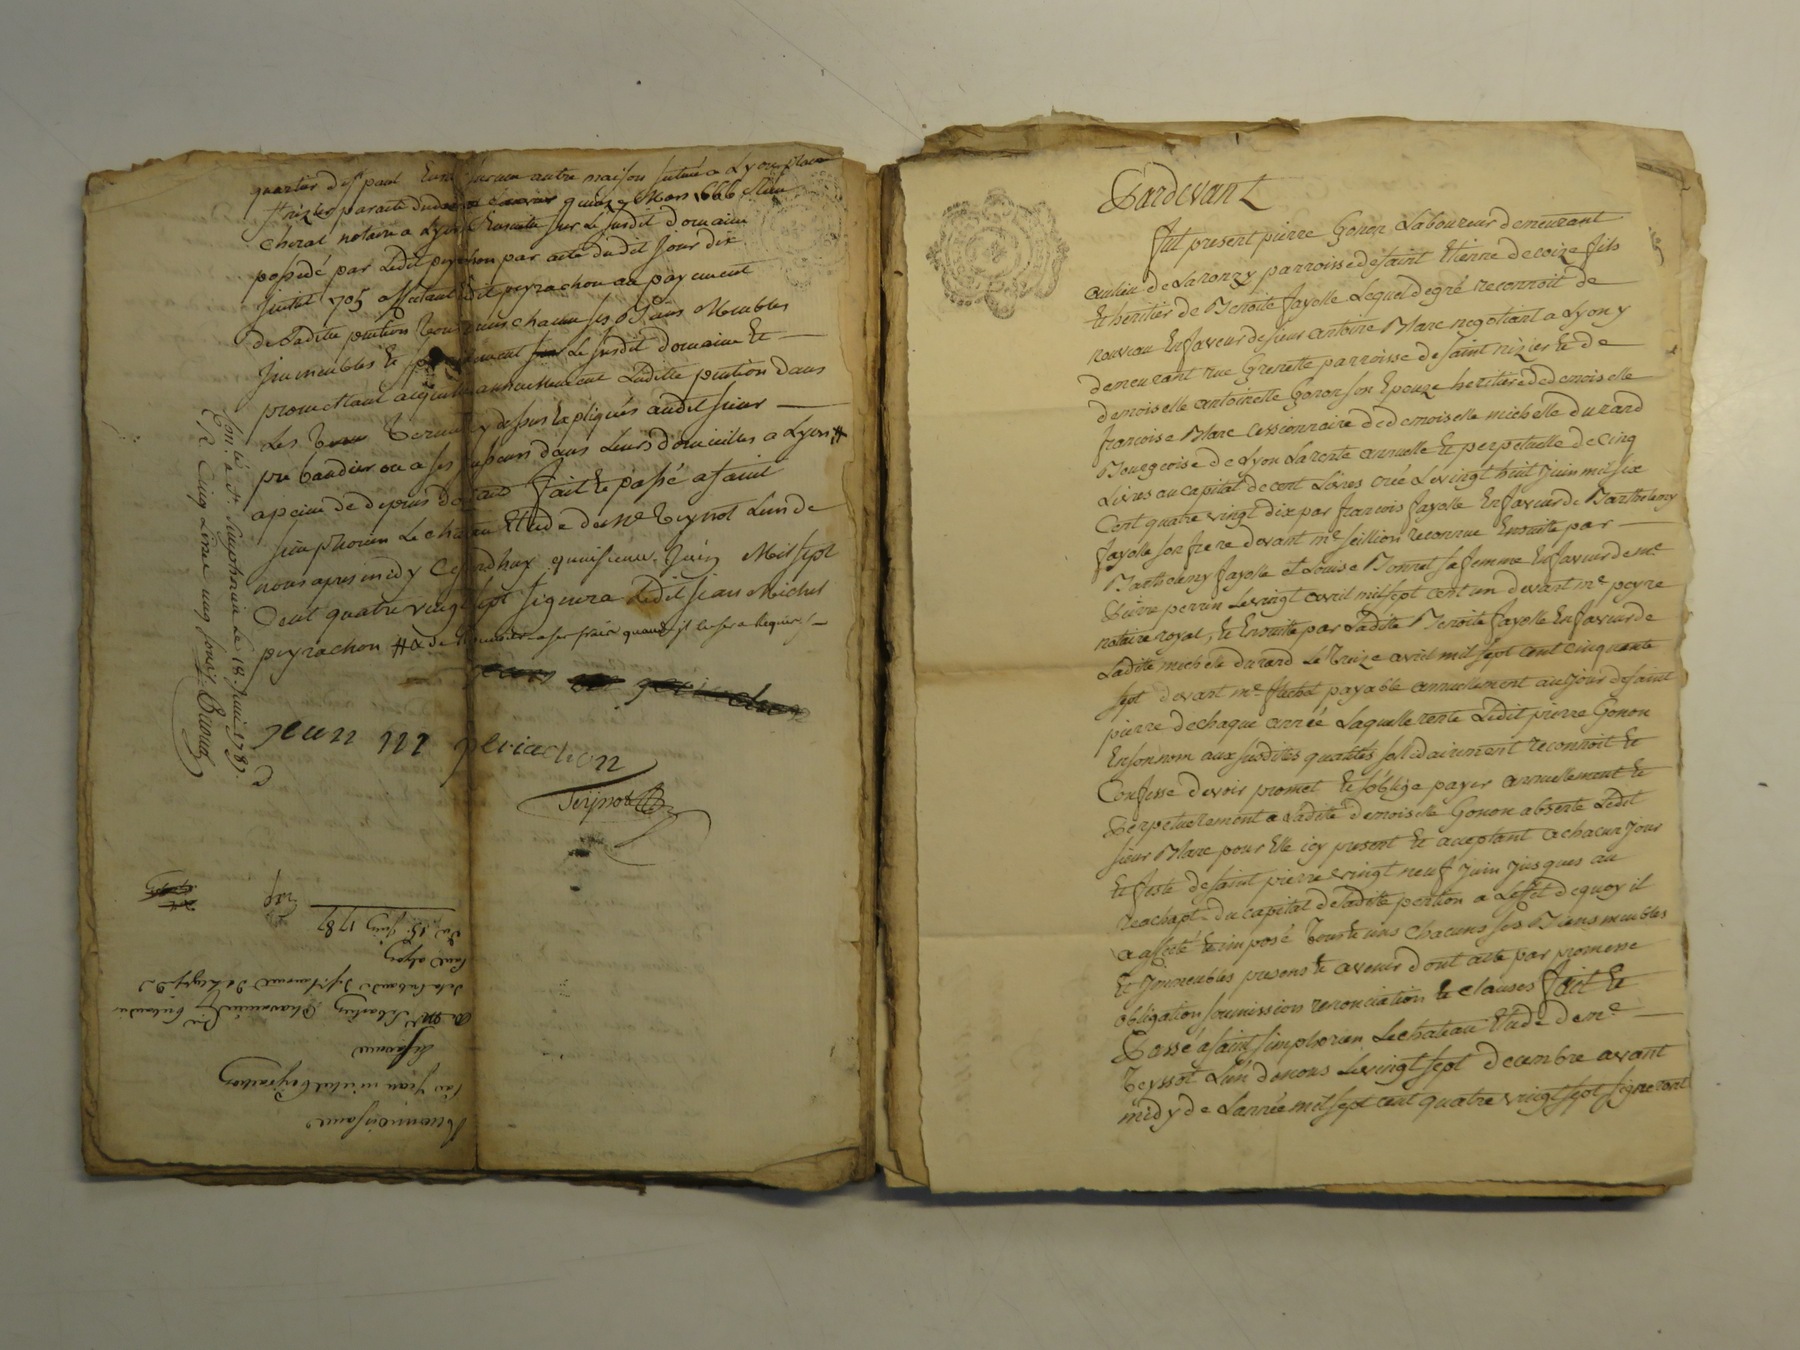 quartier de st paul sur une autre maison située a Lyon place
quinze Mars 1666
notaire a Lyon Ensuite sur Le susdit domaine
possedé par Ledit peyrachon par acte dudit Jour dix
Juillet 1705 affectant Ledit peyrachon au payement
de Ladite pention Tous Et uns chacuns ses Biens Meubles
Immeubles Et Le susdit domaine Et
promettant acquitter annuellement Laditte pention dans
Les Termes Cy dessus Expliqués audit sieur
ou a ses dans Leurs domiciles a Lyon #
apeine de depens fait Et passé a saint
simphorien Le chateau Etude de Me Teyssot L'un de
nous apres midy Cejourdhuy quinsieme Juin Mil sept
Cent quatre vingt sept signera Ledit Jean Michel
peyrachon # & de a ses frais quand il en sera Requis
jean m periachon
Teyssot
Con.lé a St Simphorien Le 18 Juin 1787.
R Cinq Livre
Reconnoissance
Par Jean michel Peyrachon
Du 15 Juin 1787
Pardevant
fut present pierre Gonon Laboureur demeurant
au lieu de Laronzy parroisse de saint Etienne de coize fils
Et heritier de Benoite fayolle Lequel de gré reconnoit de
nouveau En faveur de sieur antoine Blanc negotiant a Lyon y
demeurant rue Grenette parroisse de saint nizier Et de
demoiselle antoinette Gonon son Epouze heritiere de demoiselle
francoise Blanc cessionnaire de demoiselle michelle durand
Bourgeoise de Lyon La rente annuelle Et perpetuelle de Cinq
Livres au capital de cent Livres créé Le vingt huit Juin mil six
Cent quatre vingt dix par francois fayolle En faveur de Barthelemy
fayolle son frere devant me seillion reconnue Ensuite par
Barthelemy fayolle et Louise Bonnet sa femme En faveur de me
Pierre perrin Le vingt avril mil sept cent un devant me peyre
notaire royal, Et Ensuitte par Ladite Benoite fayolle En faveur de
Ladite michelle durand Le Treize avril mil sept cent cinquante
sept devant me payable annuellement au jour de saint
pierre de chaque année Laquelle rente Ledit pierre Gonon
En son nom aux susdites qualités sollidairement reconnoit Et
Confesse devoir promet Et s'oblige payer annuellement Et
Perpetuelement a Ladite demoiselle Gonon absente Ledit
sieur Blanc pour Elle icy present Et aceptant a chacun jour
Et feste de saint pierre vingt neuf Juin Jusques au
reachapt du capital de Ladite pention a L'effet de quoy il
a affecté Et imposé Tous Et uns chacuns ses Biens meubles
Et Immeubles presens Et avenir dont acte par promesse
obligation soumission renonciation Et clauses fait Et
Passé a saint simphorien Le chateau Etude de me
Teyssot L'un de nous Le vingt sept decembre avant
midy de L'année mil sept cent quatre vingt sept signeront